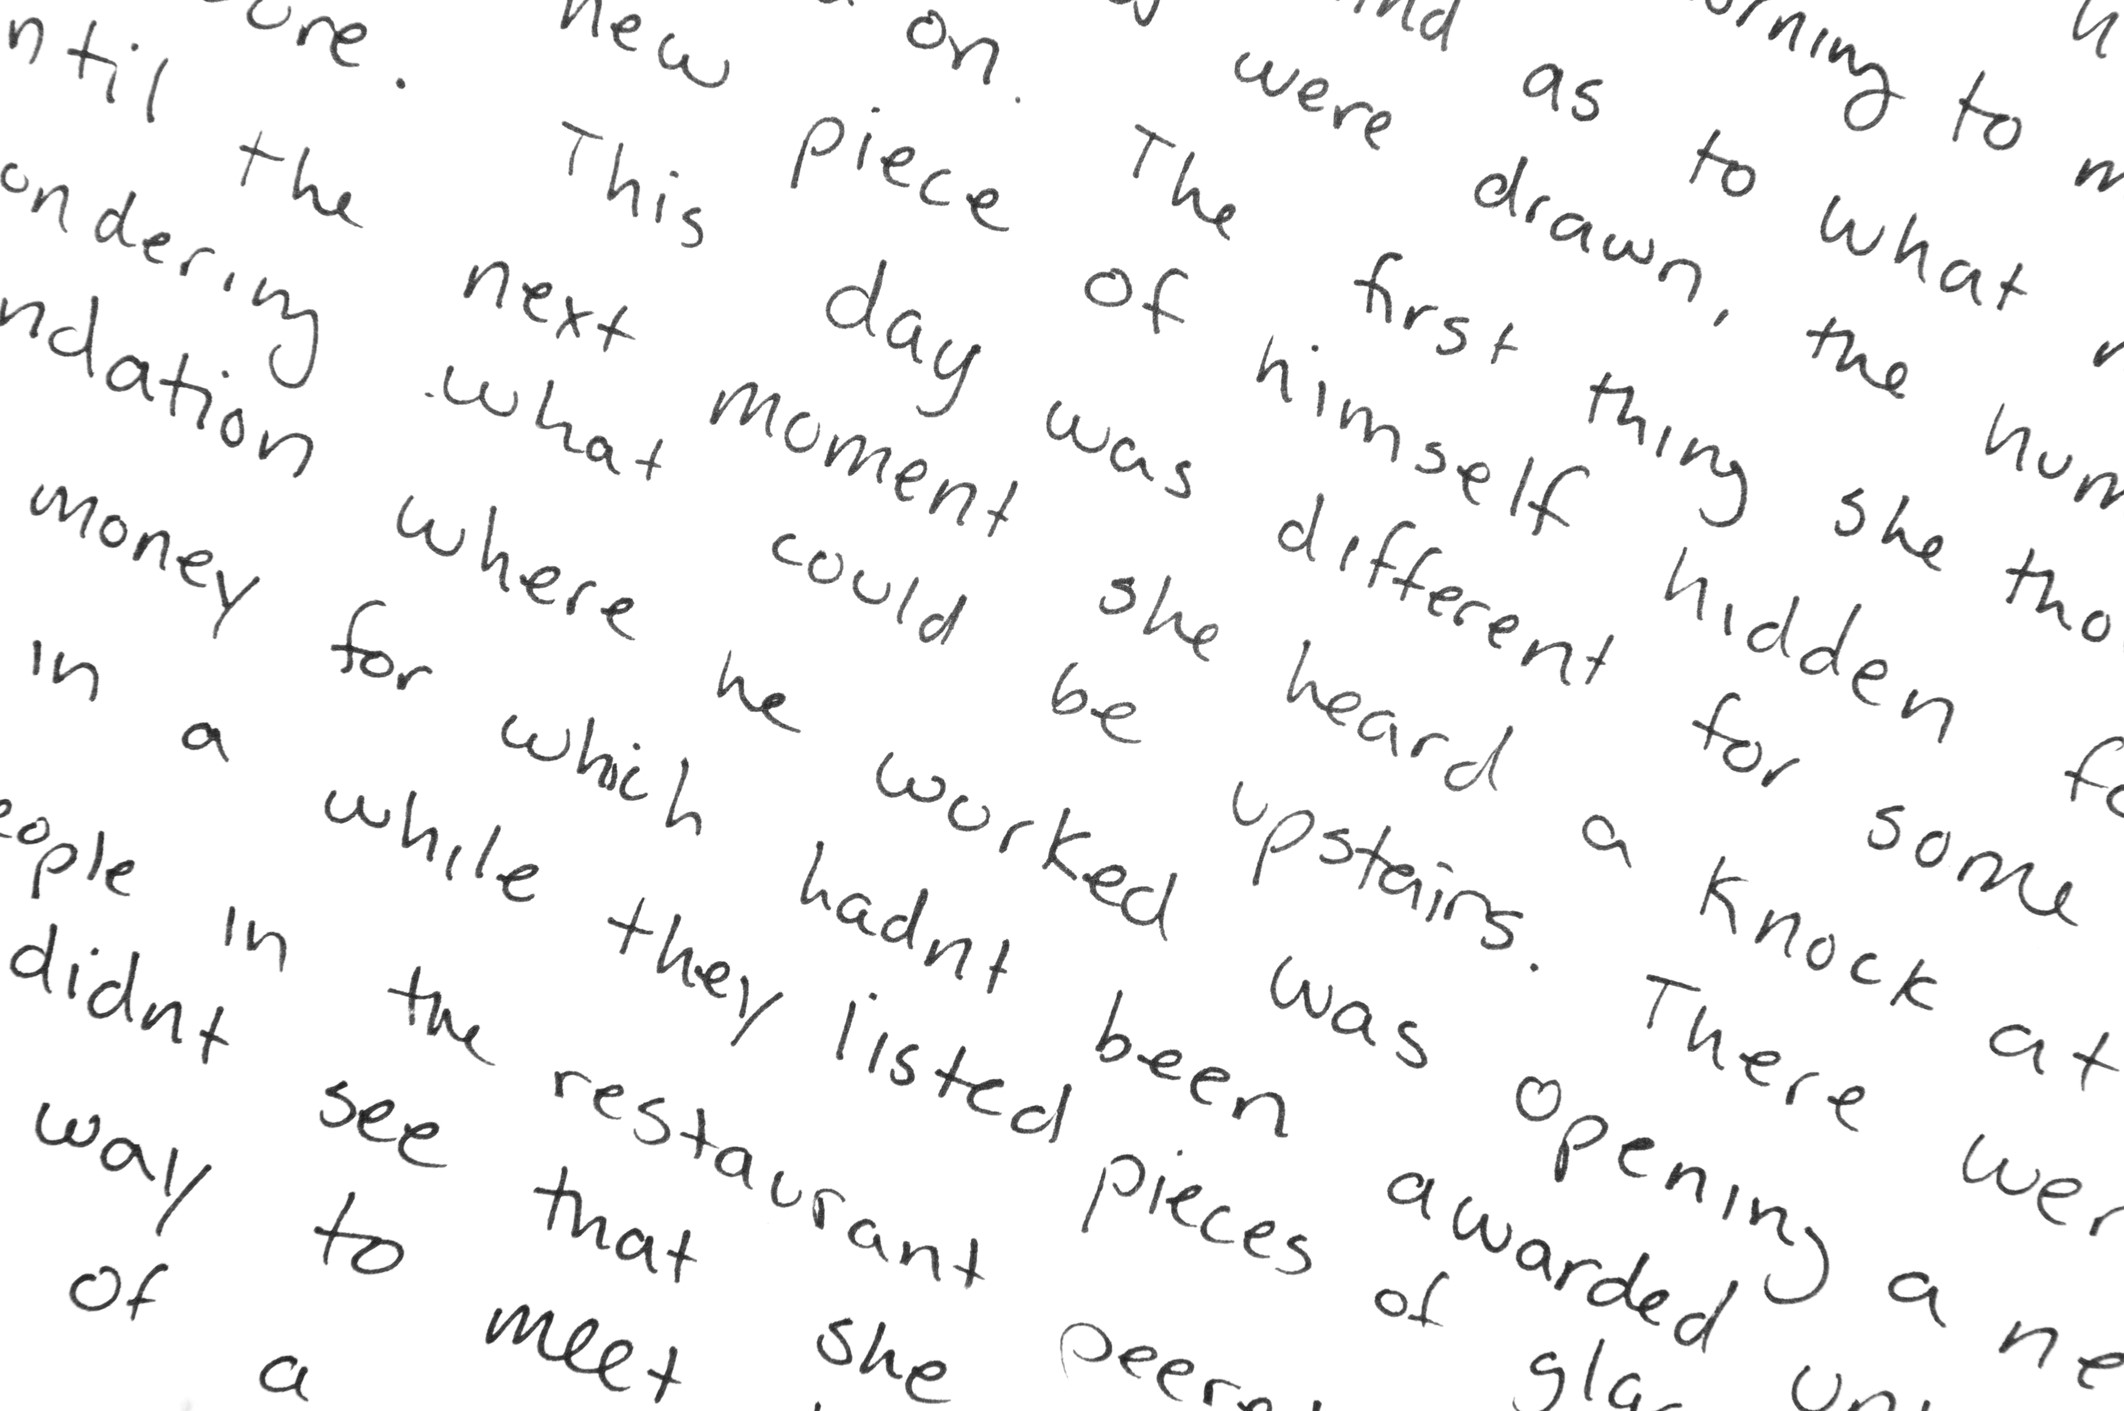 rning to m
nd as to what
were drawn, the hum
on. The first thing she tho
new piece of himself hidden fo
ore. This day was different for some
ntil the next moment she heard a knock at
ondering what could be upstairs. There wer
ndation where he worked was opening a ne
money for which hadnt been awarded un
in a while they listed pieces of gla
eople in the restaurant peere
didnt see that she
way to meet
of a